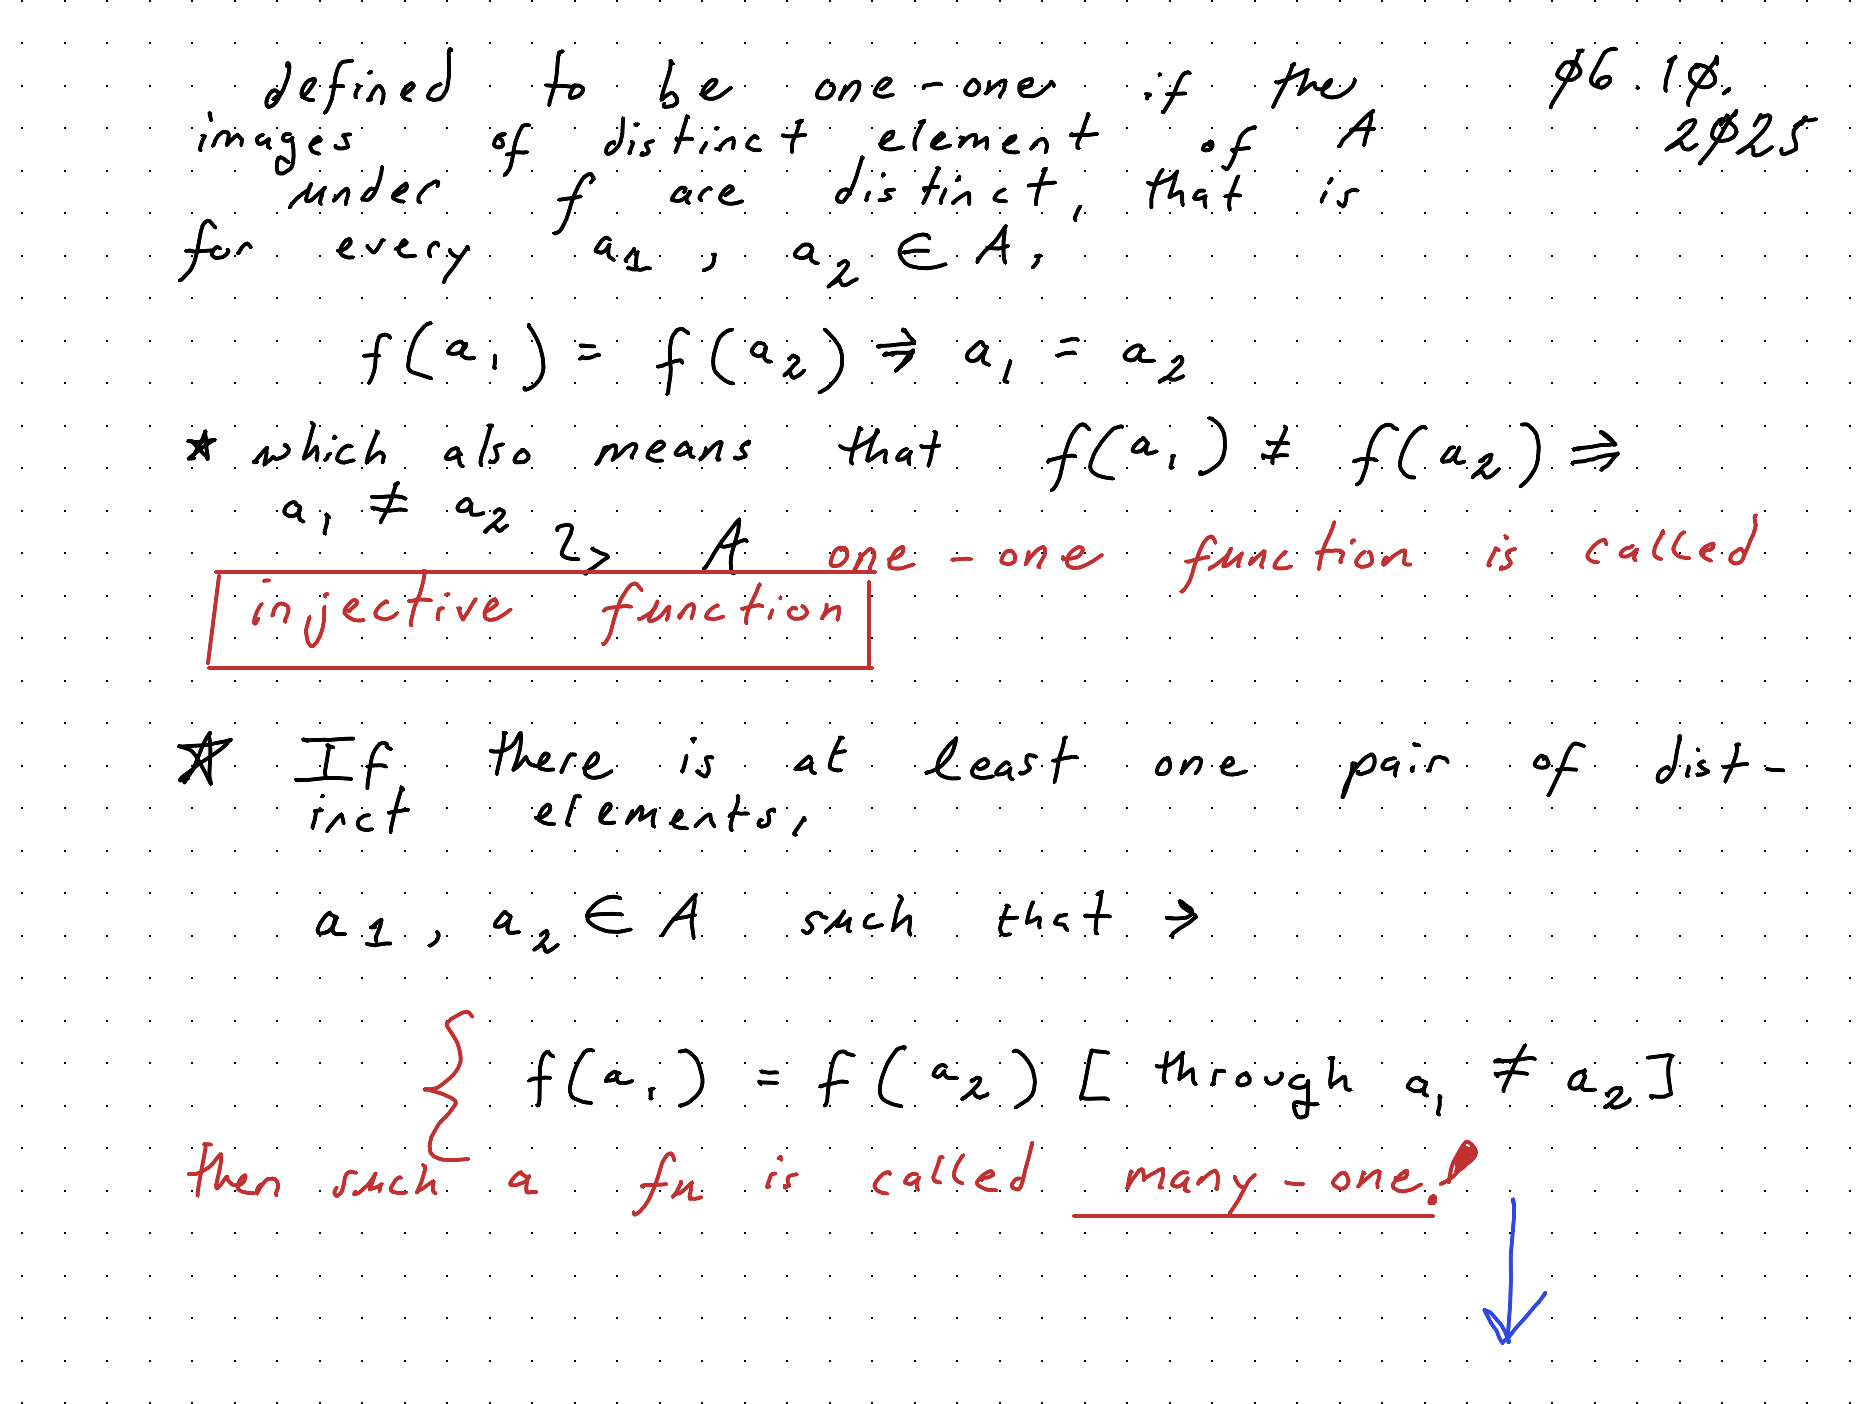 defined to be one-one if the
ø6.1ø.
2ø25
images of distinct element of A
under f are distinct, that is
for every a1, a2 ∈ A,
f(a1) = f(a2) ⇒ a1 = a2
★ which also means that f(a1) ≠ f(a2) ⇒
a1 ≠ a2
↳ A one-one function is called
injective function
★ If there is at least one pair of dist-
inct elements,
a1, a2 ∈ A such that →
f(a1) = f(a2) [through a1 ≠ a2]
then such a fn is called many-one!